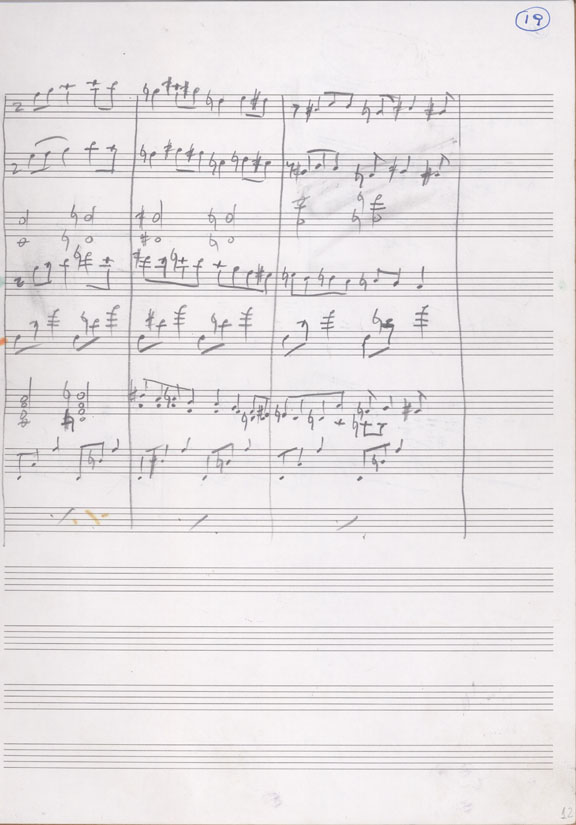 19
12